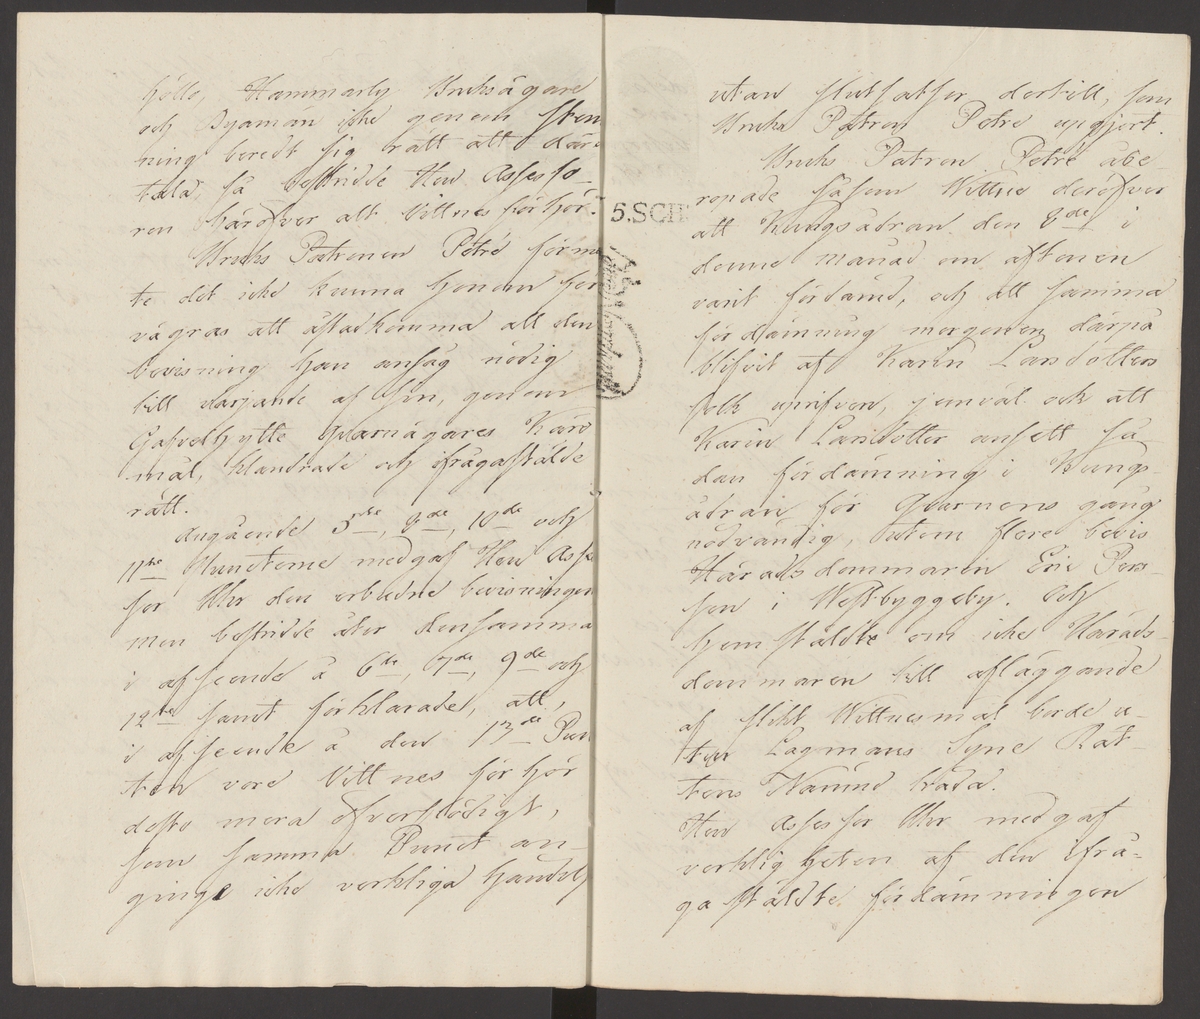 hölle, Hammarby Bruksägare
och Byaman icke genom stem
ning beredt sig rätt att där
tala, så bestridde Herr Assesso-
ren häröfver alt Vittnesförhör.
Bruks Patronen Petré förme
te det icke kunna honom för
vägras att åstadkomma all den
bevisning han ansåg nödig
till värjande af sin, genom
Gafvelhytte Qvarnägares Käro
mål, klandrade och ifrågastälde
rätt.
Angående 5te, 8de, 10de och
11te Puncterne medgaf Herr Asse
sor Uhr den erbudne bevisningen
men bestridde åter densamma
i afseende å 6te, 7de, 9de och
12te samt förklarade, att,
i afseende å den 13de Pun
ten vore Vittnes förhör
desto mera öfverflödigt,
som samma Punct an-
ginge icke verkliga händels
utan slutsatser dertill, som
Bruks Patron Petré upgjort.
Bruks Patron Petré åbe-
ropade såsom Wittne deröfver
att Kungsådran den 8de i
denne månad om aftonen
varit fördämd, och att samma
fördämning morgonen därpå
blifvit af Karin Larsdotters
folk uprifven, jemväl ock att
Karin Larsdotter ansett så
dan fördämning i Kungs-
ådran för Qvarnens gång
nödvändig, utom flere bevis
Häradsdommaren Eric Pers-
son i Westbyggeby. Och
hemstäldte om icke Härads-
dommaren till afläggande
af slikt Wittnesmål borde u-
tur Lagmans Syne Rät-
tens Nämnd träda.
Herr Assessor Uhr medgaf
verkligheten af den ifrå-
ga stäldte fördämningen
5.SCH